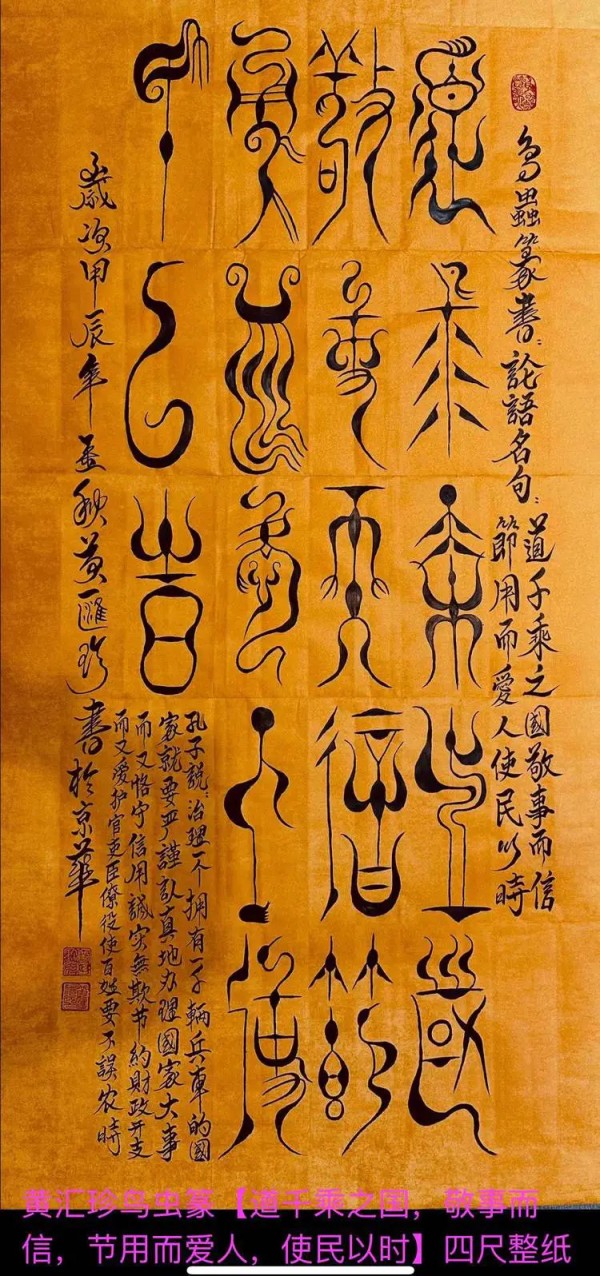 鳥蟲篆書：論語名句：道千乘之國敬事而信
節用而愛人使民以時
道千乘之國
敬事而信節
用而愛人使
民以時
孔子說：治理一个擁有一千輛兵車的國
家就要严謹认真地办理國家大事
而又恪守信用誠实無欺节約財政开支
而又爱护官吏臣僚役使百姓要不誤农時
歲次甲辰年孟秋黃匯珍書於京華
黄汇珍鸟虫篆【道千乘之国，敬事而
信，节用而爱人，使民以时】四尺整纸